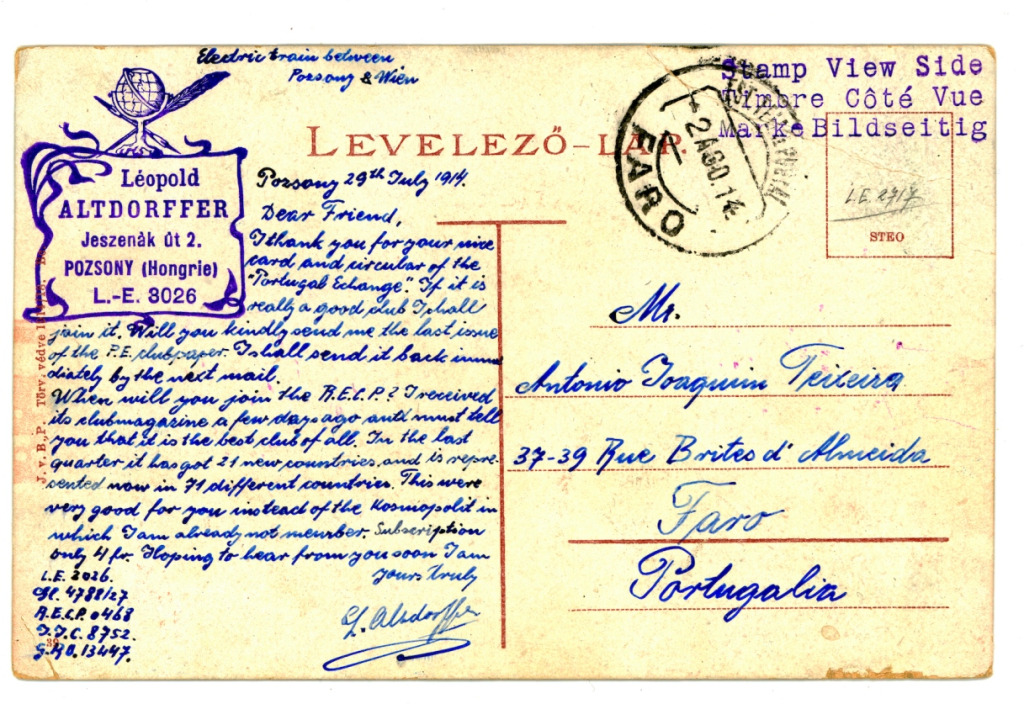 Electric train between
Pozsony & Wien
Stamp View Side
Timbre Côté Vue
Marke Bildseitig
LEVELEZŐ-LAP.
FARO
2 AGO. 14
L.E. 2717
STEO
Léopold
ALTDORFFER
Jeszenàk ût 2.
POZSONY (Hongrie)
L.-E. 3026
Pozsony 29th July 1914.
Dear Friend,
I thank you for your nice
card and circular of the
"Portugal Echange". If it is
really a good club I shall
join it. Will you kindly send me the last issue
of the P.E. clubpaper. I shall send it back imme
diately by the next mail.
When will you join the R.E.C.P.? I received
its clubmagazine a few days ago and must tell
you that it is the best club of all. In the last
quarter it has got 21 new countries and is repre-
sented now in 71 different countries. This were
very good for you instead of the Kosmopolit in
which I am already not member. Subscription
only 4 fr. Hoping to hear from you soon I am
Yours truly
L. Altdorffer
L.E. 3026.
4788/27
R.E.C.P. 0468
8752.
13447.
Mr.
Antonio Joaquim Teixeira
37-39 Rue Brites d'Almeida
Faro
Portugalia
Törv. védve